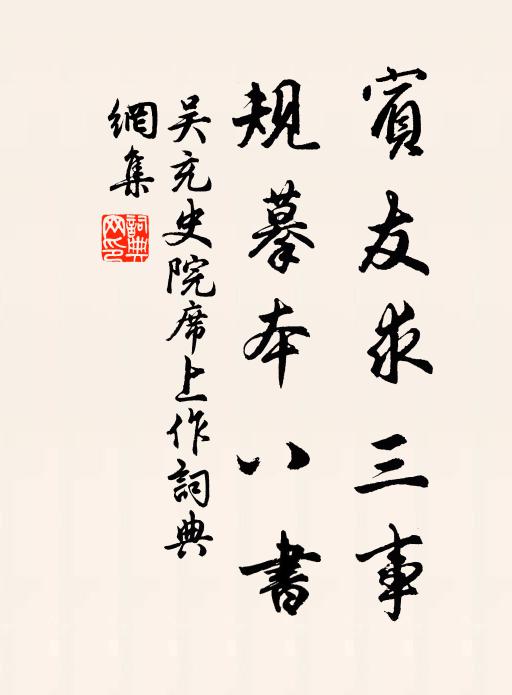 賓友求三事
規摹本八書
吳充史院席上作詞典
網集
詞典
网印